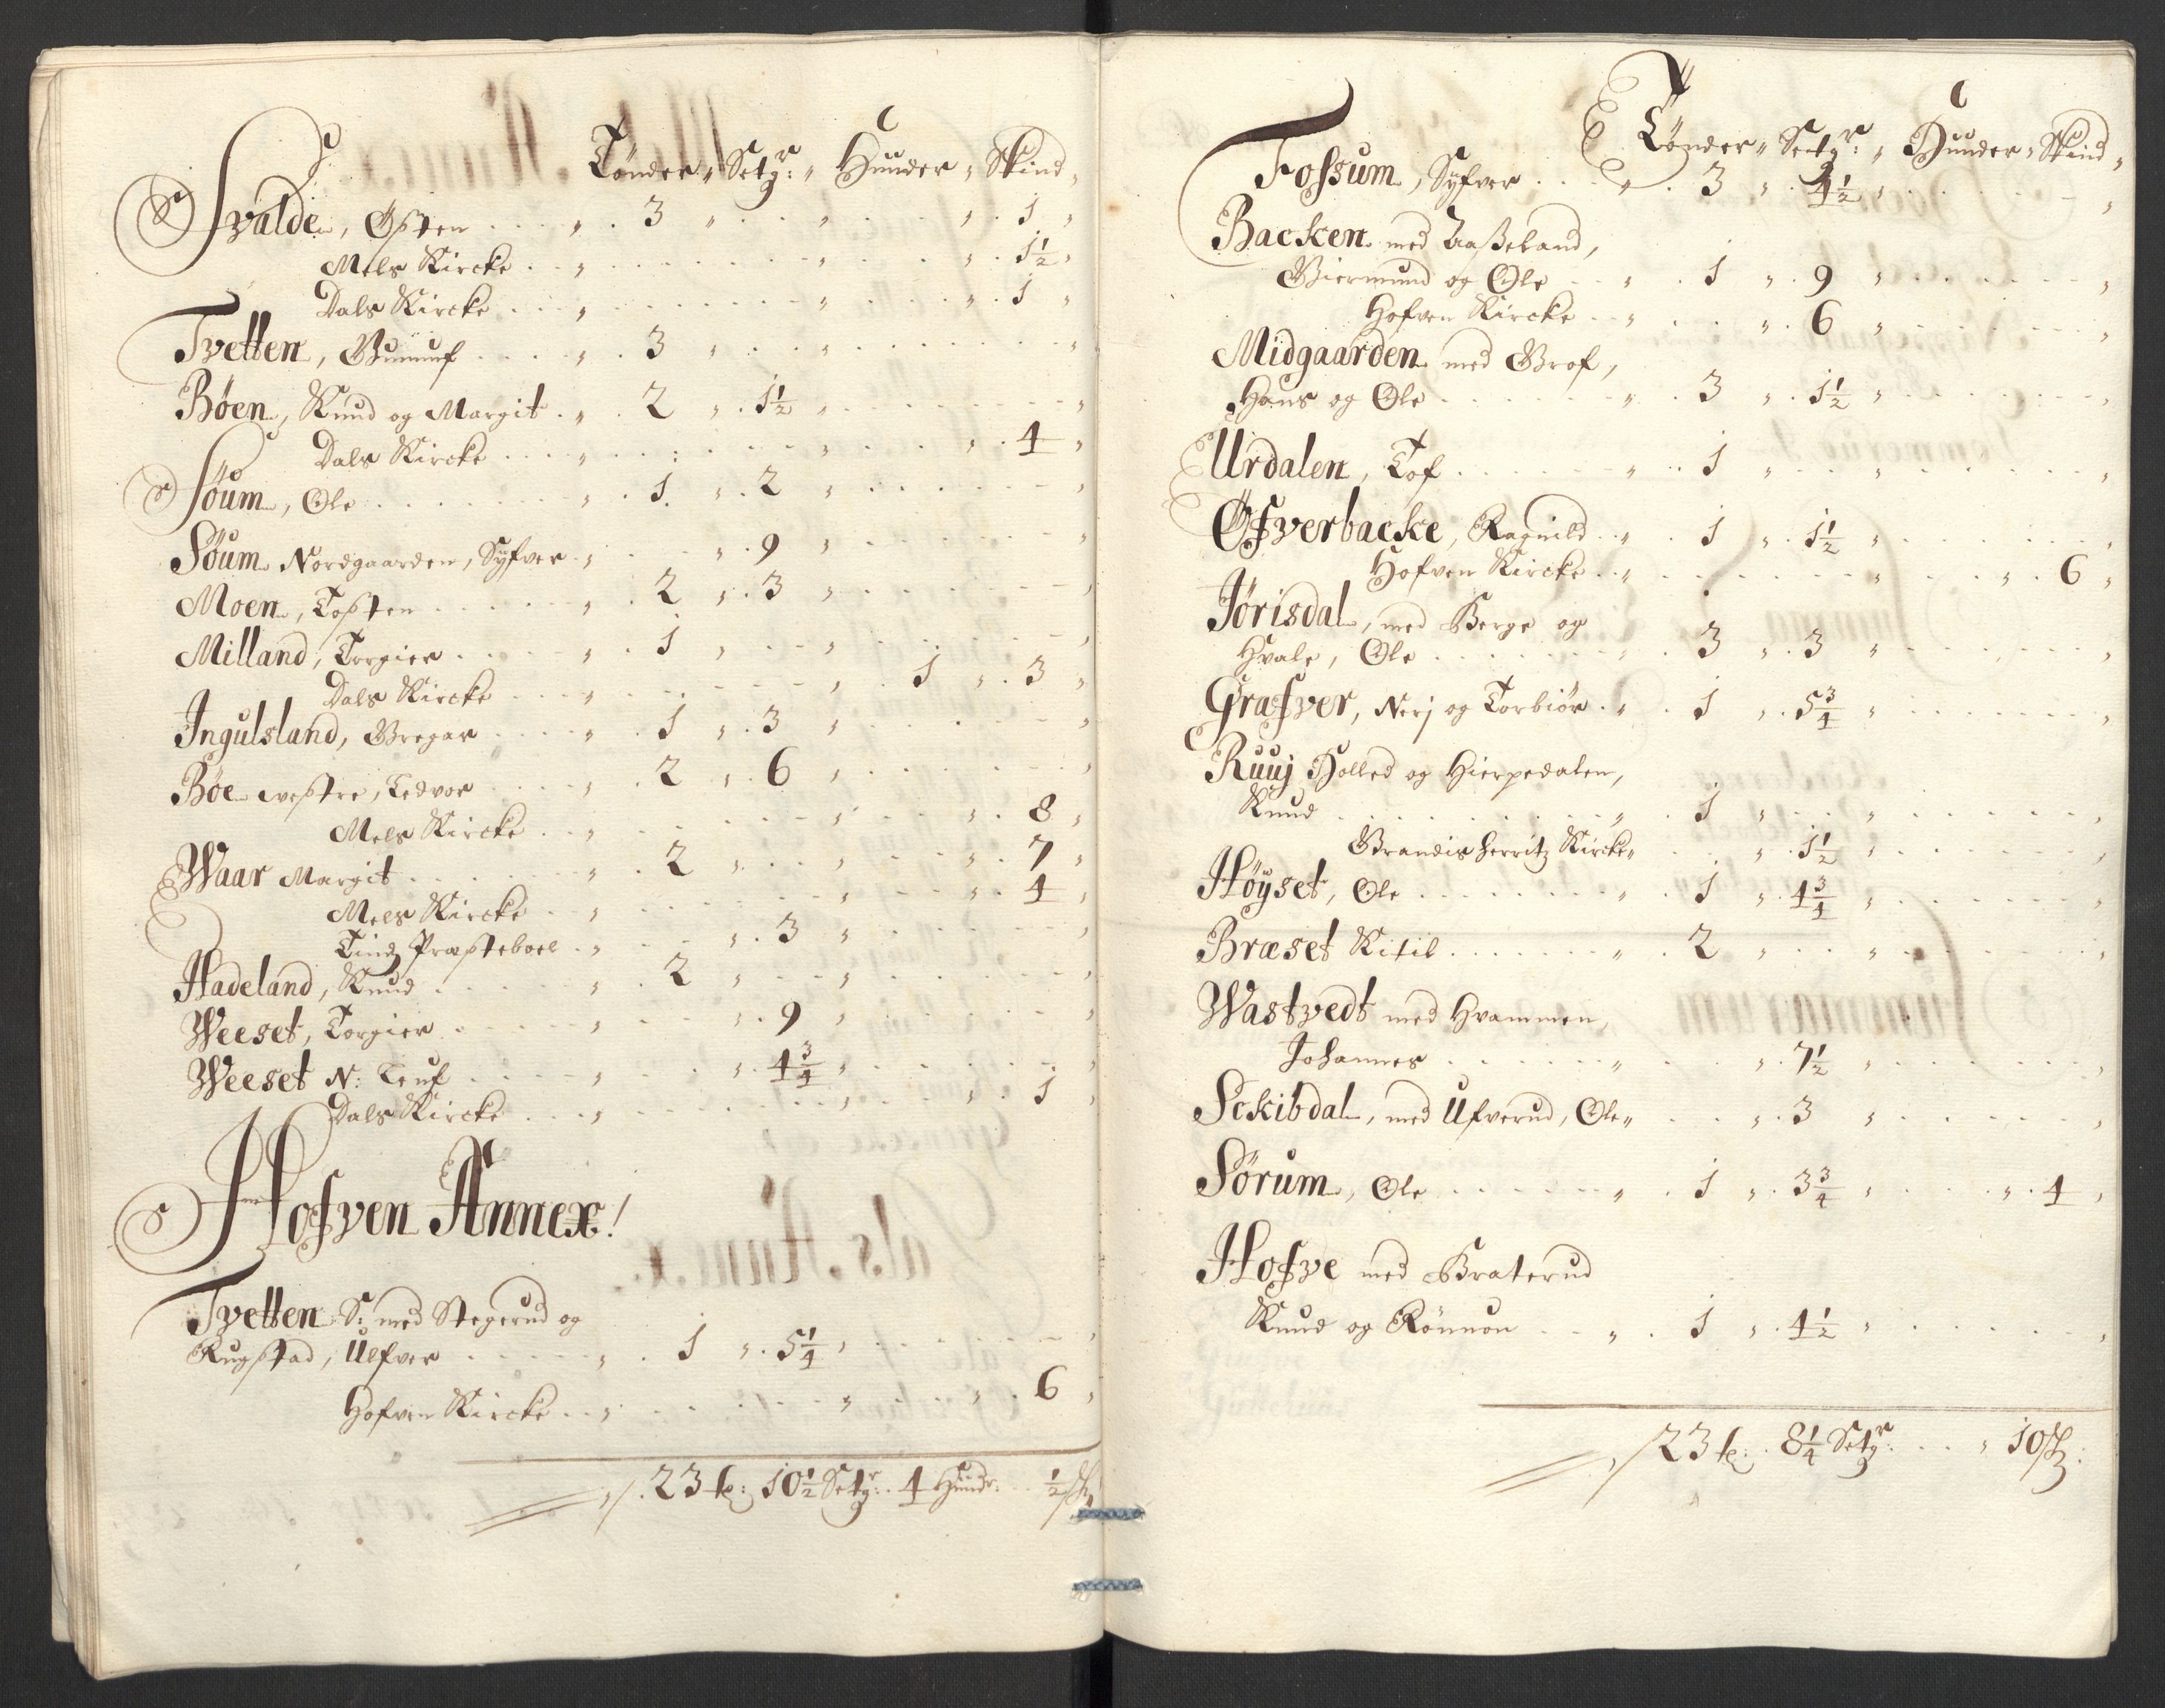 Tønder „ Setgr: „ Hunder „ Skind „
Svalde, Østen . . . „ . 3 „ . . „ . . . „ . 1 „
Mels Kircke . . „ . . . . . . „ . . . „ . 1½ „
Dals Kircke . . . „ . . . . . . „ . . . „ . 1 „
Tvetten, Gunnuf . . . . „ . 3 „ . . . „ . . . . . „
Bøen, Knud og Margit . „ . 2 „ . 1½ „ . . . . . „
Dals Kircke . . . . „ . . . . . . „ . . . „ . 4 „
Søum, Ole . . . . . . „ . 1 „ . 2 „ . . . . . „
Søum Nordgaarden, Syfver . „ . . . „ . 9 „ . . . . . „
Moen, Tosten . . . . . „ . 2 „ . 3 „ . . . . . „
Milland, Torgier . . . . „ . 1 „ . . „ . . . . . „
Dals Kircke . . . „ . . . . . . „ . 1 „ . 3 „
Ingulsland, Gregar . . . . „ . 1 „ . 3 „ . . . . . „
Bøe westre, Tedvor . . . . „ . 2 „ . 6 „ . . . . . „
Mels Kircke . . „ . . . . . . „ . . . „ . 8 „
Waar Margit . . . . . . „ . 2 „ . . „ . . . „ . 7 „
Mels Kircke . . „ . . . . . . „ . . . „ . 4 „
Tindz Præsteboel . „ . . . „ . 3 „ . . . . . „
Hadeland, Knud . . . . . „ . 2 „ . . „ . . . . . „
Weeset, Torgier . . . . . „ . . . „ . 9 „ . . . . . „
Weeset N: Leuf . . . . . „ . . . „ . 4¾ „ . . . . . „
Dals Kircke . . . „ . . . . . . „ . . . „ . 1 „
Hofven Annex!
Tvetten S: med Stegerud og
Rugstad, Ulfver . . . . . „ . 1 „ . 5¼ „ . . . . . „
Hofven Kircke . . „ . . . . . . „ . . . „ . 6 „
23 t: 10½ Setgr: . 4 Hundr: . . ½ sk:
Tønder „ Setgr: „ Hunder „ Skind „
Fossum, Syfver . . . . „ . 3 „ . 4½ „ . . . . . „
Backen med Aasseland,
Giermund og Ole . . „ . 1 „ . 9 „ . . . . . „
Hofven Kircke . . „ . . . „ . 6 „ . . . . . „
Midgaarden med Grof,
Hans og Ole . . . . . . „ . 3 „ . 1½ „ . . . . . „
Urdalen, Tof . . . . . . „ . 1 „ . . „ . . . . . „
Øfverbacke, Ragnild . . „ . 1 „ . 1½ „ . . . . . „
Hofven Kircke . . „ . . . . . . „ . . . „ . 6 „
Jørisdal, med Berge og
Hvale, Ole . . . . . . . „ . 3 „ . 3 „ . . . . . „
Græfver, Nerj og Torbiør . „ . 1 „ . 5¾ „ . . . . . „
Ruuj Holled og Hierpedalen,
Knud . . . . . . . . . „ . 1 „ . . „ . . . . . „
Grandisherritz Kircke „ . . . „ . 1½ „ . . . . . „
Høyset, Ole . . . . . . . „ . 1 „ . 4¾ „ . . . . . „
Bræset Kitil . . . . . . „ . 2 „ . . „ . . . . . „
Wastvedt med Hvammen,
Johannes . . . . . . „ . . . „ . 7½ „ . . . . . „
Sckibdal, med Ufverud, Ole „ . . . „ . 3 „ . . . . . „
Sørum, Ole . . . . . . „ . 1 „ . 3¾ „ . . . „ . 4 „
Hofve med Braterud
Knud og Rønnou . . „ . 1 „ . 4½ „ . . . . . „
23 t: . 8¼ Setgr: . . . „ 10 sk: